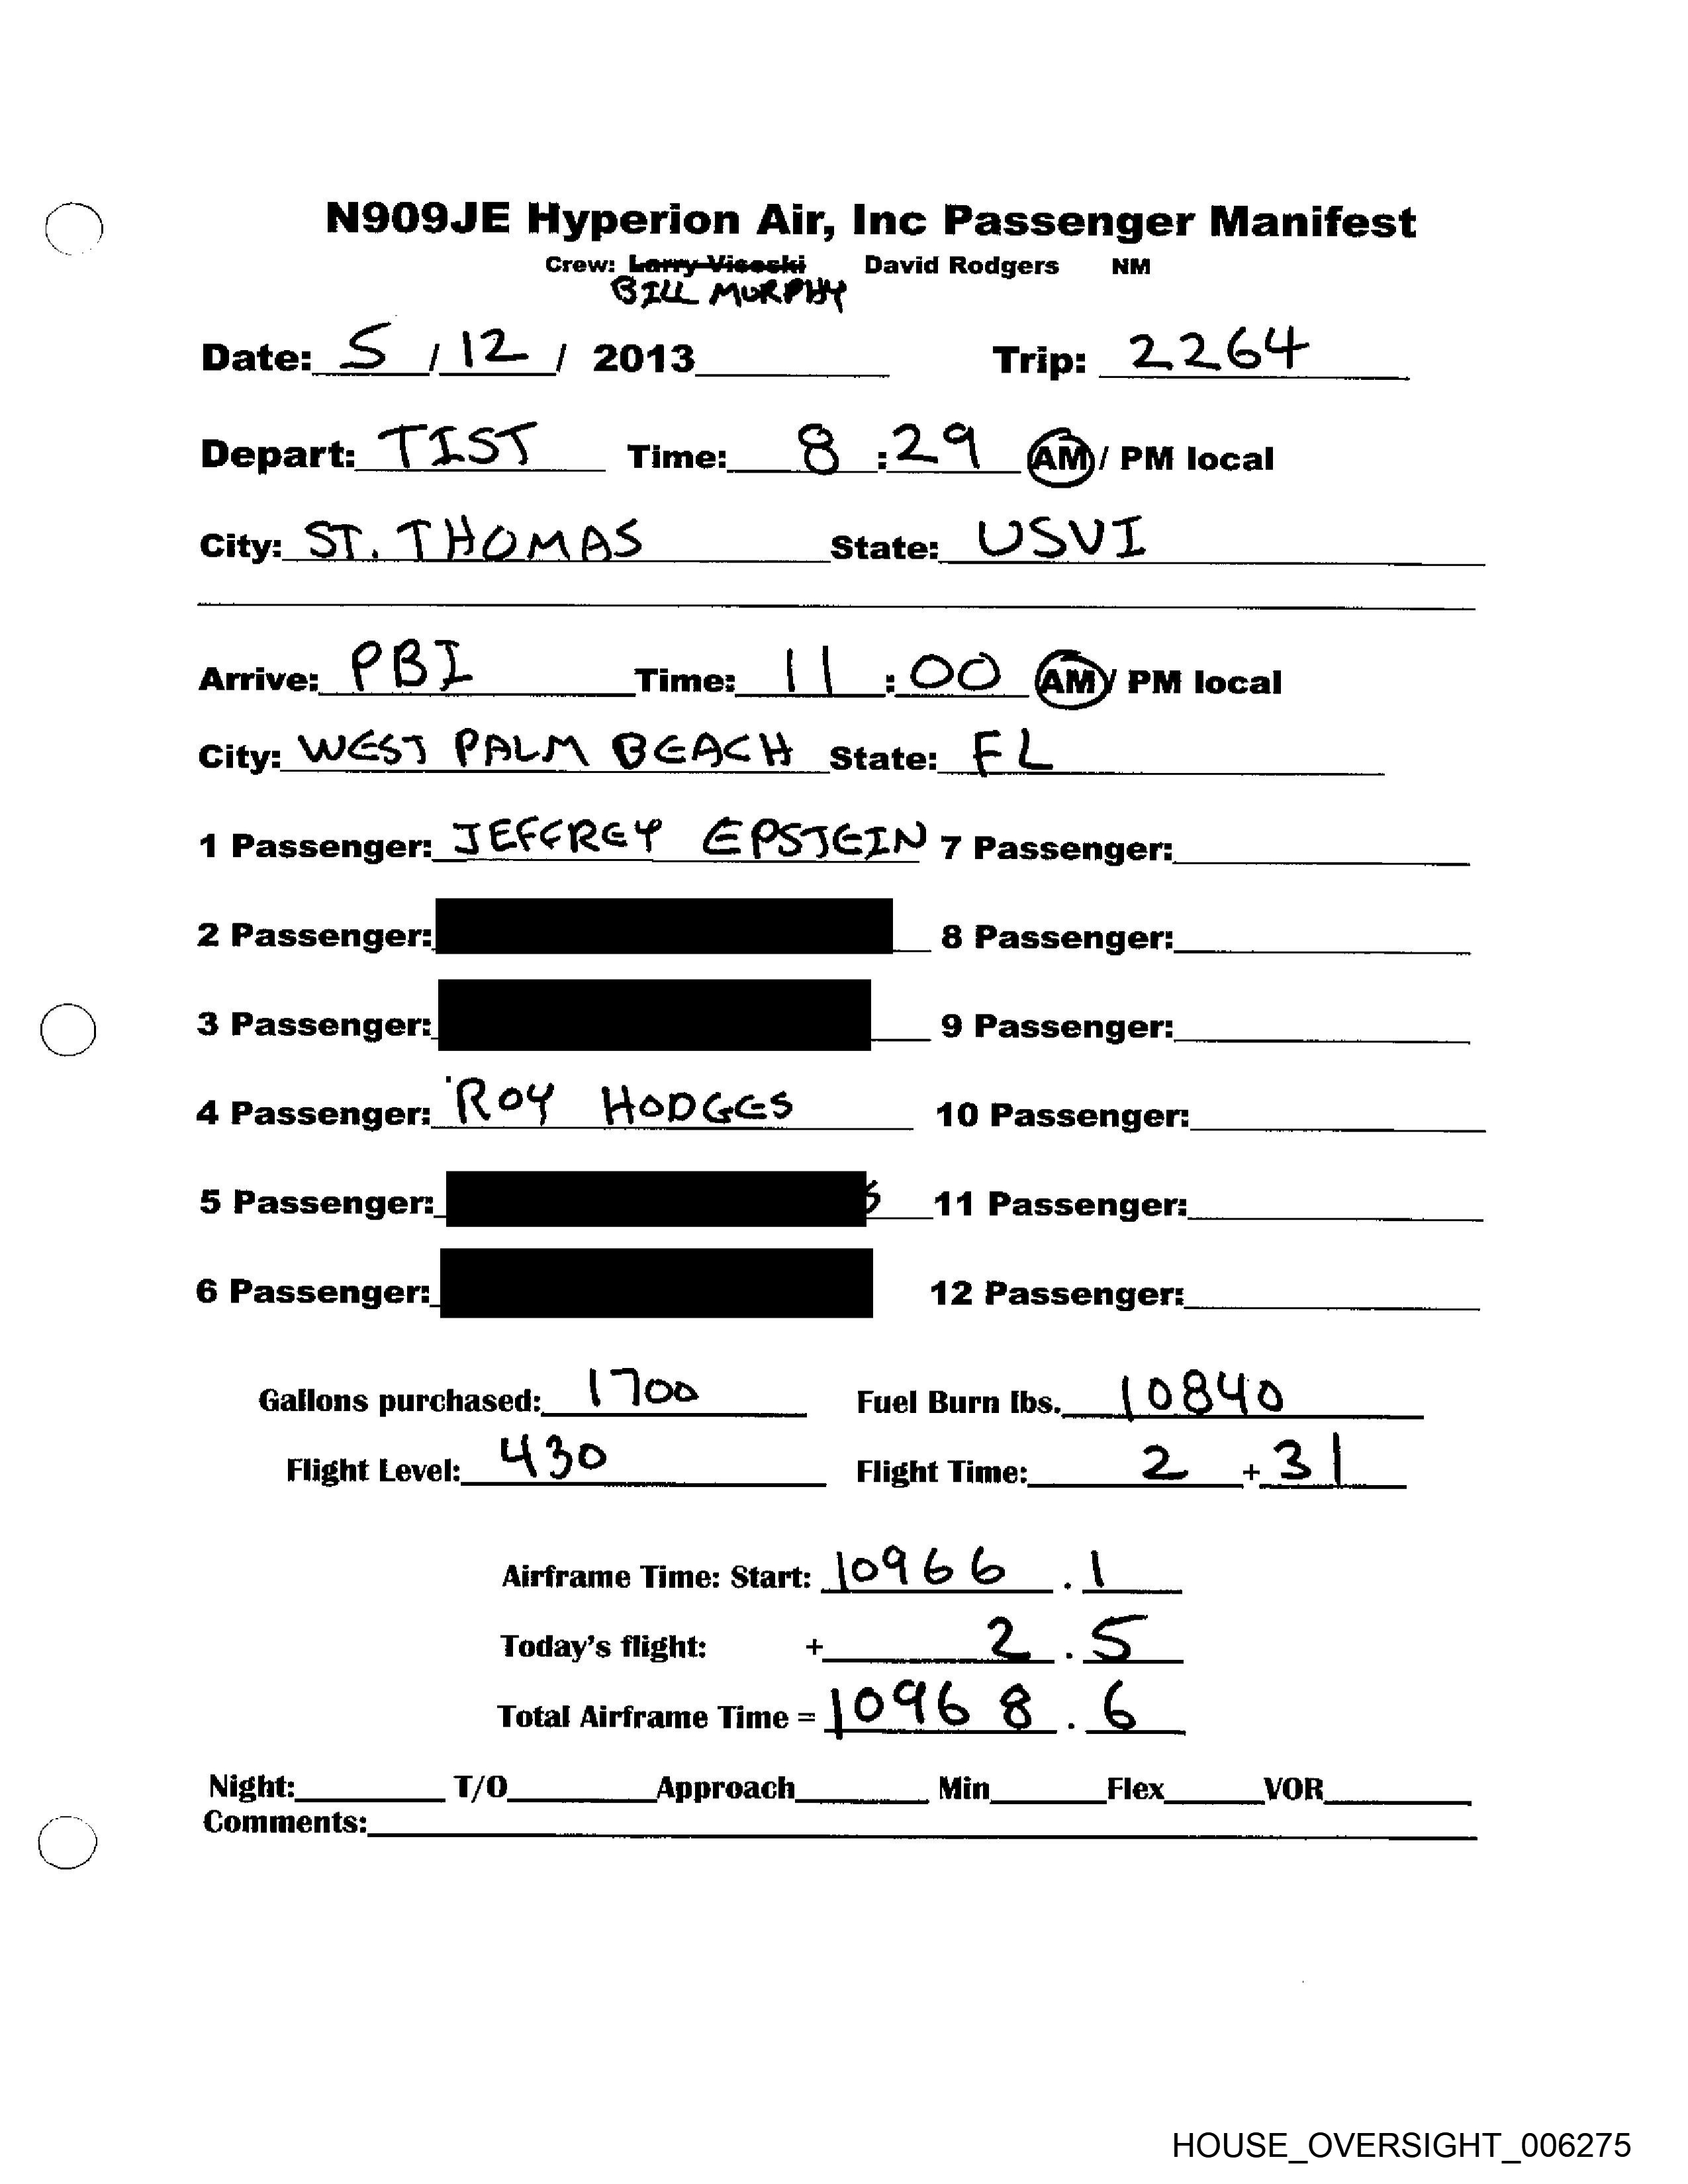 N909JE Hyperion Air, Inc Passenger Manifest
Crew: Larry Visoski David Rodgers NM
BILL MURPHY
Date: 5 / 12 / 2013 Trip: 2264
Depart: TIST Time: 8 : 29 AM / PM local
City: ST. THOMAS State: USVI
Arrive: PBI Time: 11 : 00 AM / PM local
City: WEST PALM BEACH State: FL
1 Passenger: JEFFREY EPSTEIN 7 Passenger:
2 Passenger: 8 Passenger:
3 Passenger: 9 Passenger:
4 Passenger: ROY HODGES 10 Passenger:
5 Passenger: 11 Passenger:
6 Passenger: 12 Passenger:
Gallons purchased: 1700 Fuel Burn lbs. 10840
Flight Level: 430 Flight Time: 2 + 31
Airframe Time: Start: 10966 . 1
Today's flight: + 2 . 5
Total Airframe Time = 10968 . 6
Night: T/O Approach Min Flex VOR
Comments:
HOUSE_OVERSIGHT_006275